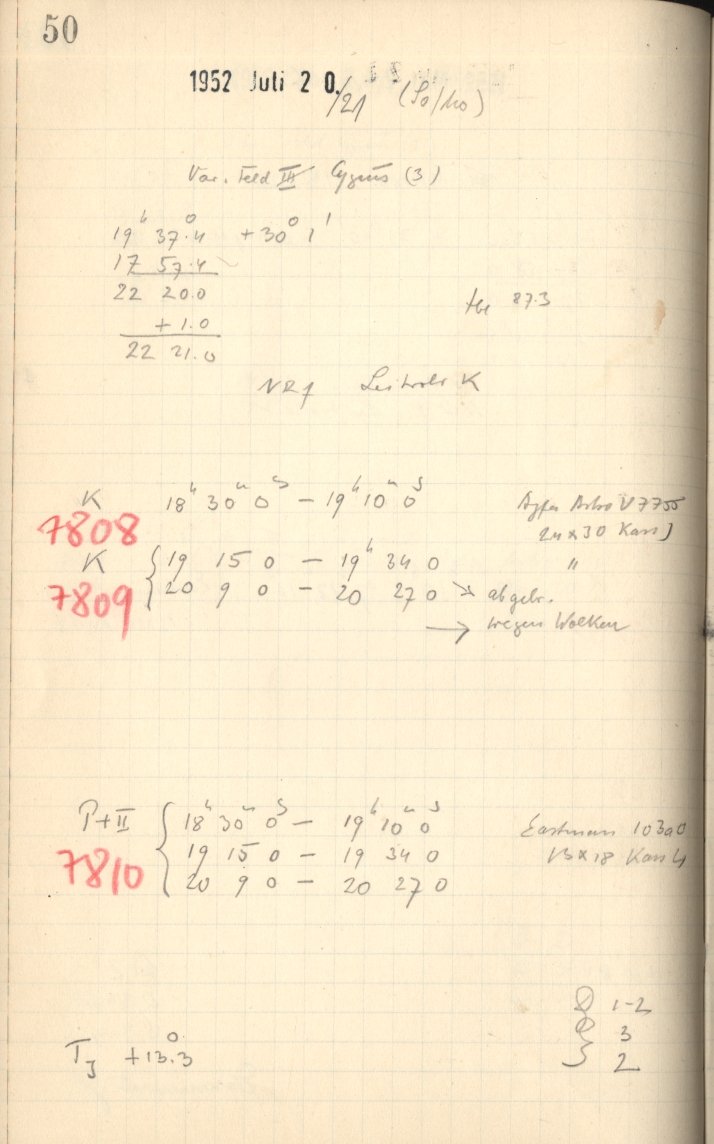 50
1952 Juli 20./21 (So/Mo)
Var. Feld III Cygnus (3)
19ʰ 37.4 +30° 1'
17 57.4
22 20.0
+1.0
22 21.0
87.3
K
K 18ʰ 30ᵐ 0ˢ – 19ʰ 10ᵐ 0ˢ Agfa Astro V 7755
7808 24 x 30 Kass J
K 19 15 0 – 19ʰ 34 0 "
7809 20 9 0 – 20 27 0 → abgebr.
→ wegen Wolken
P+II 18ʰ 30ᵐ 0ˢ – 19ʰ 10ᵐ 0ˢ Eastman 103a0
7810 19 15 0 – 19 34 0 13x18 Kass 4
20 9 0 – 20 27 0
1-2
3
T_J +13.3° 2